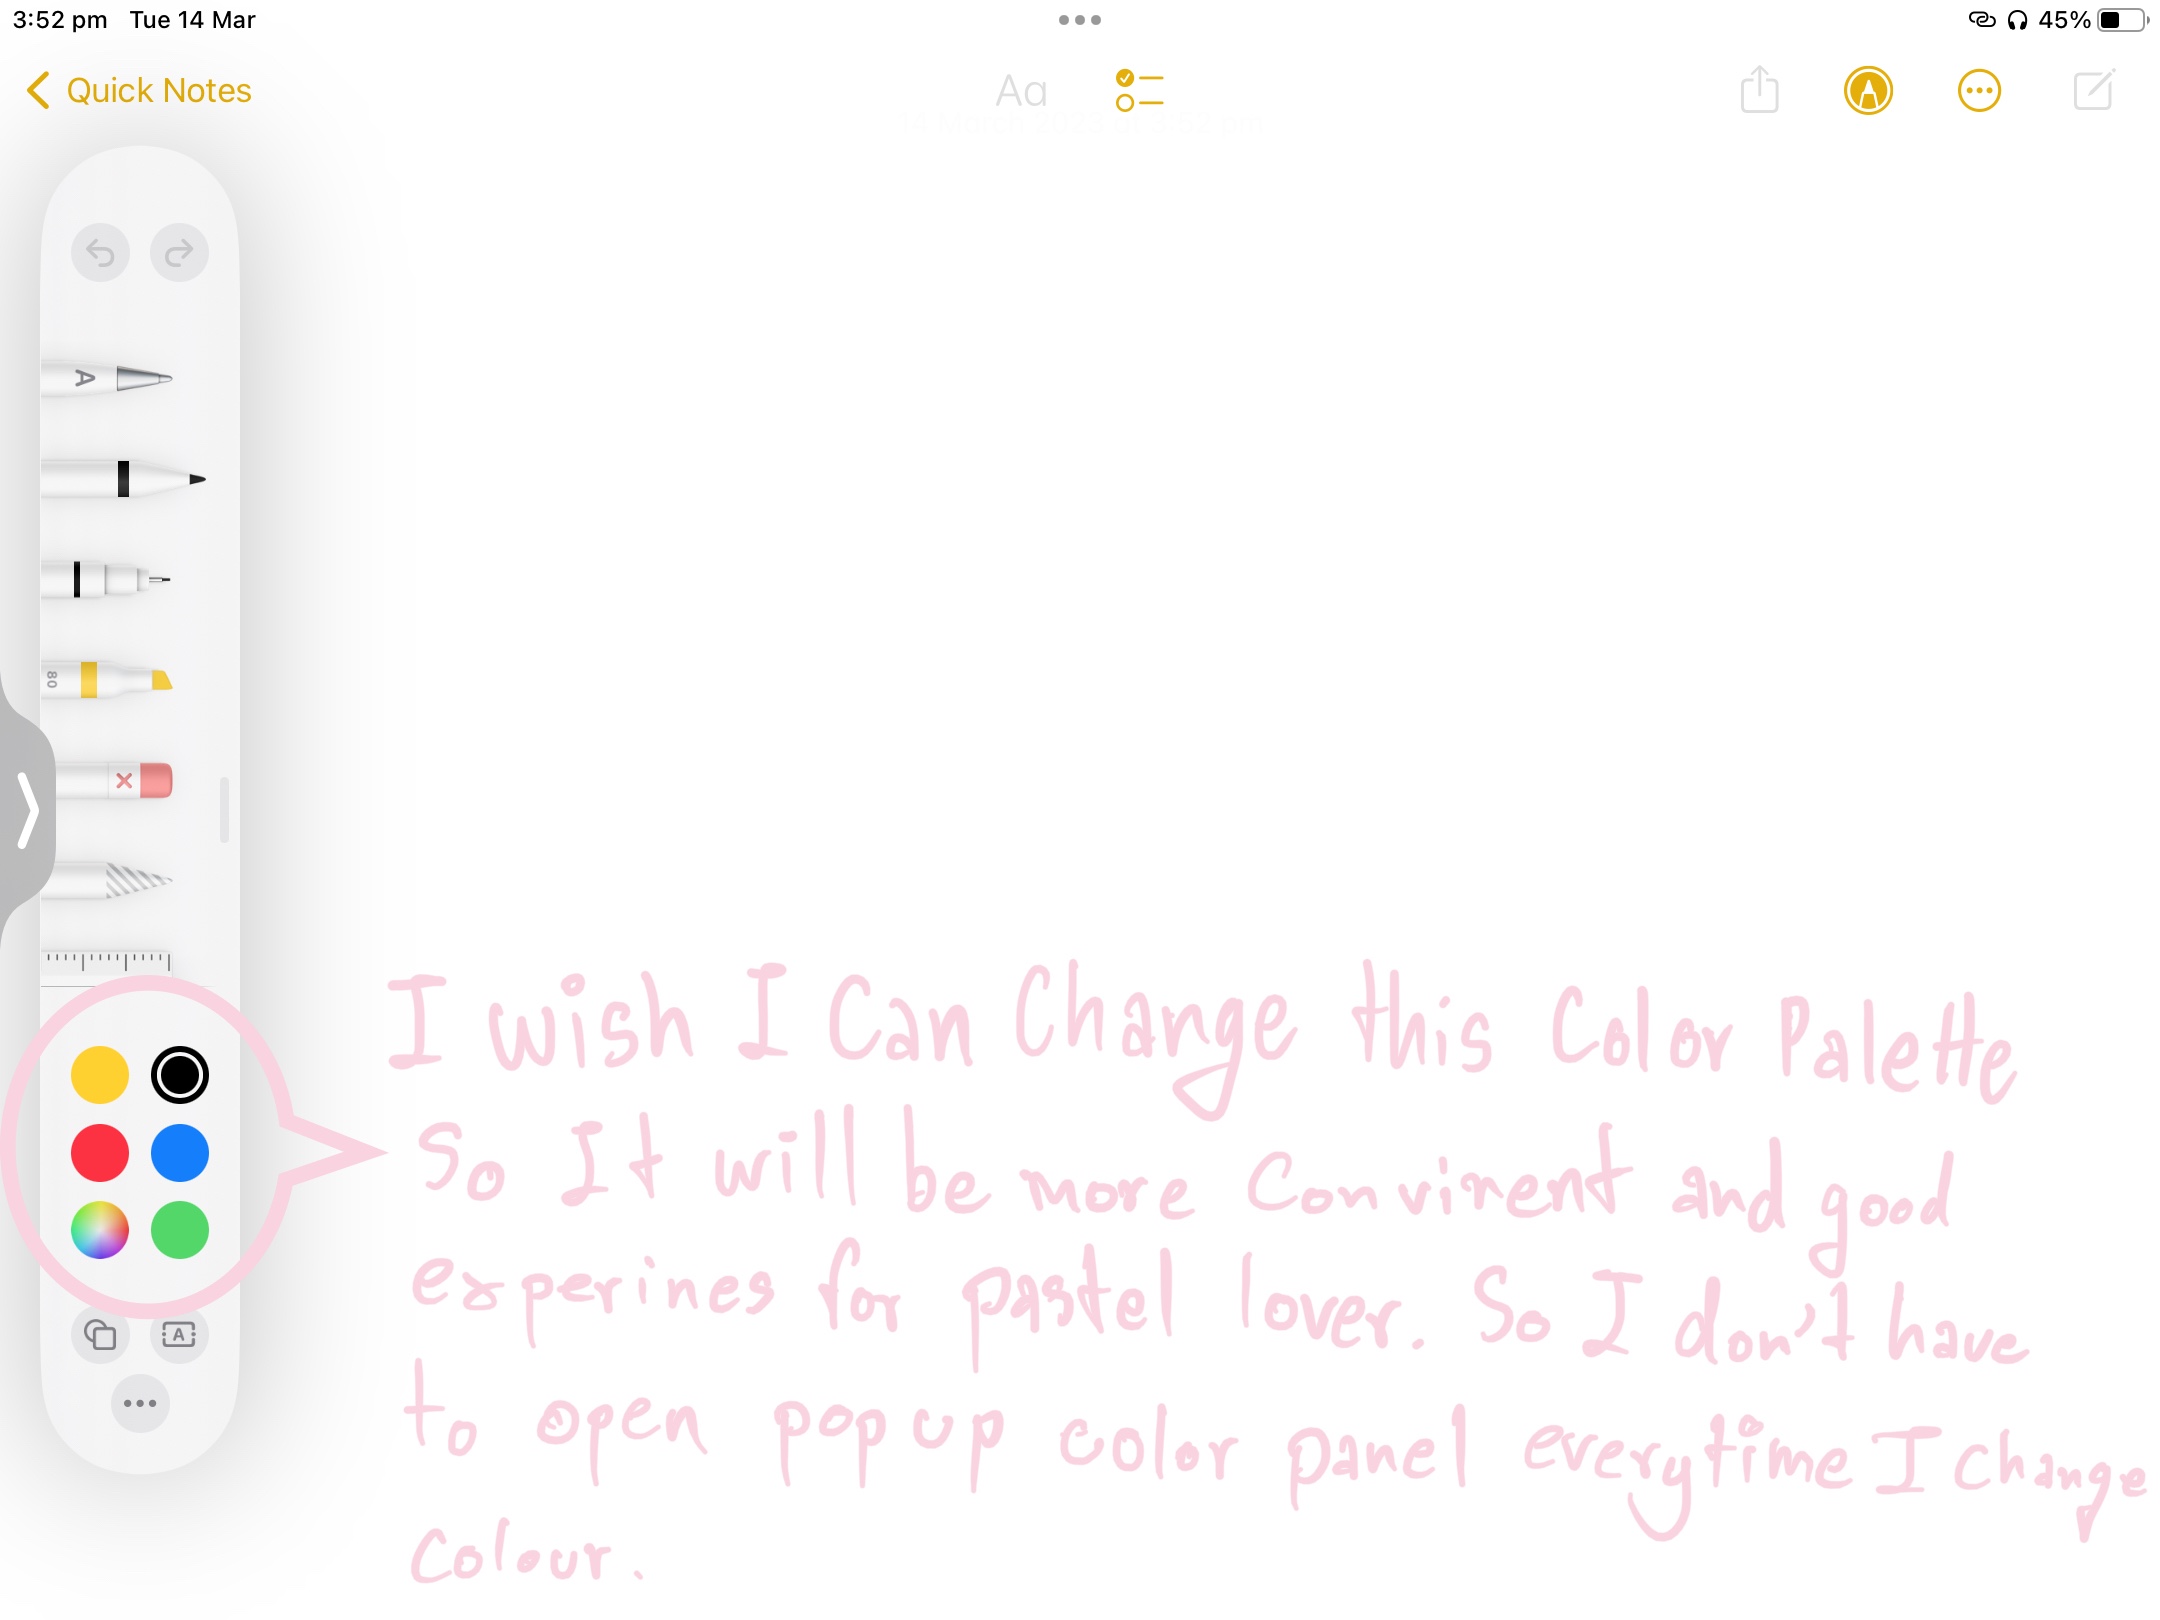 3:52 pm Tue 14 Mar 45%
Quick Notes Aa
14 March 2023 at 3:52 pm
A
80
I wish I Can Change this Color Palette
So It will be more Convinent and good
experines for pastel lover. So I don't have
A
to open pop up color panel everytime I Change
Colour.